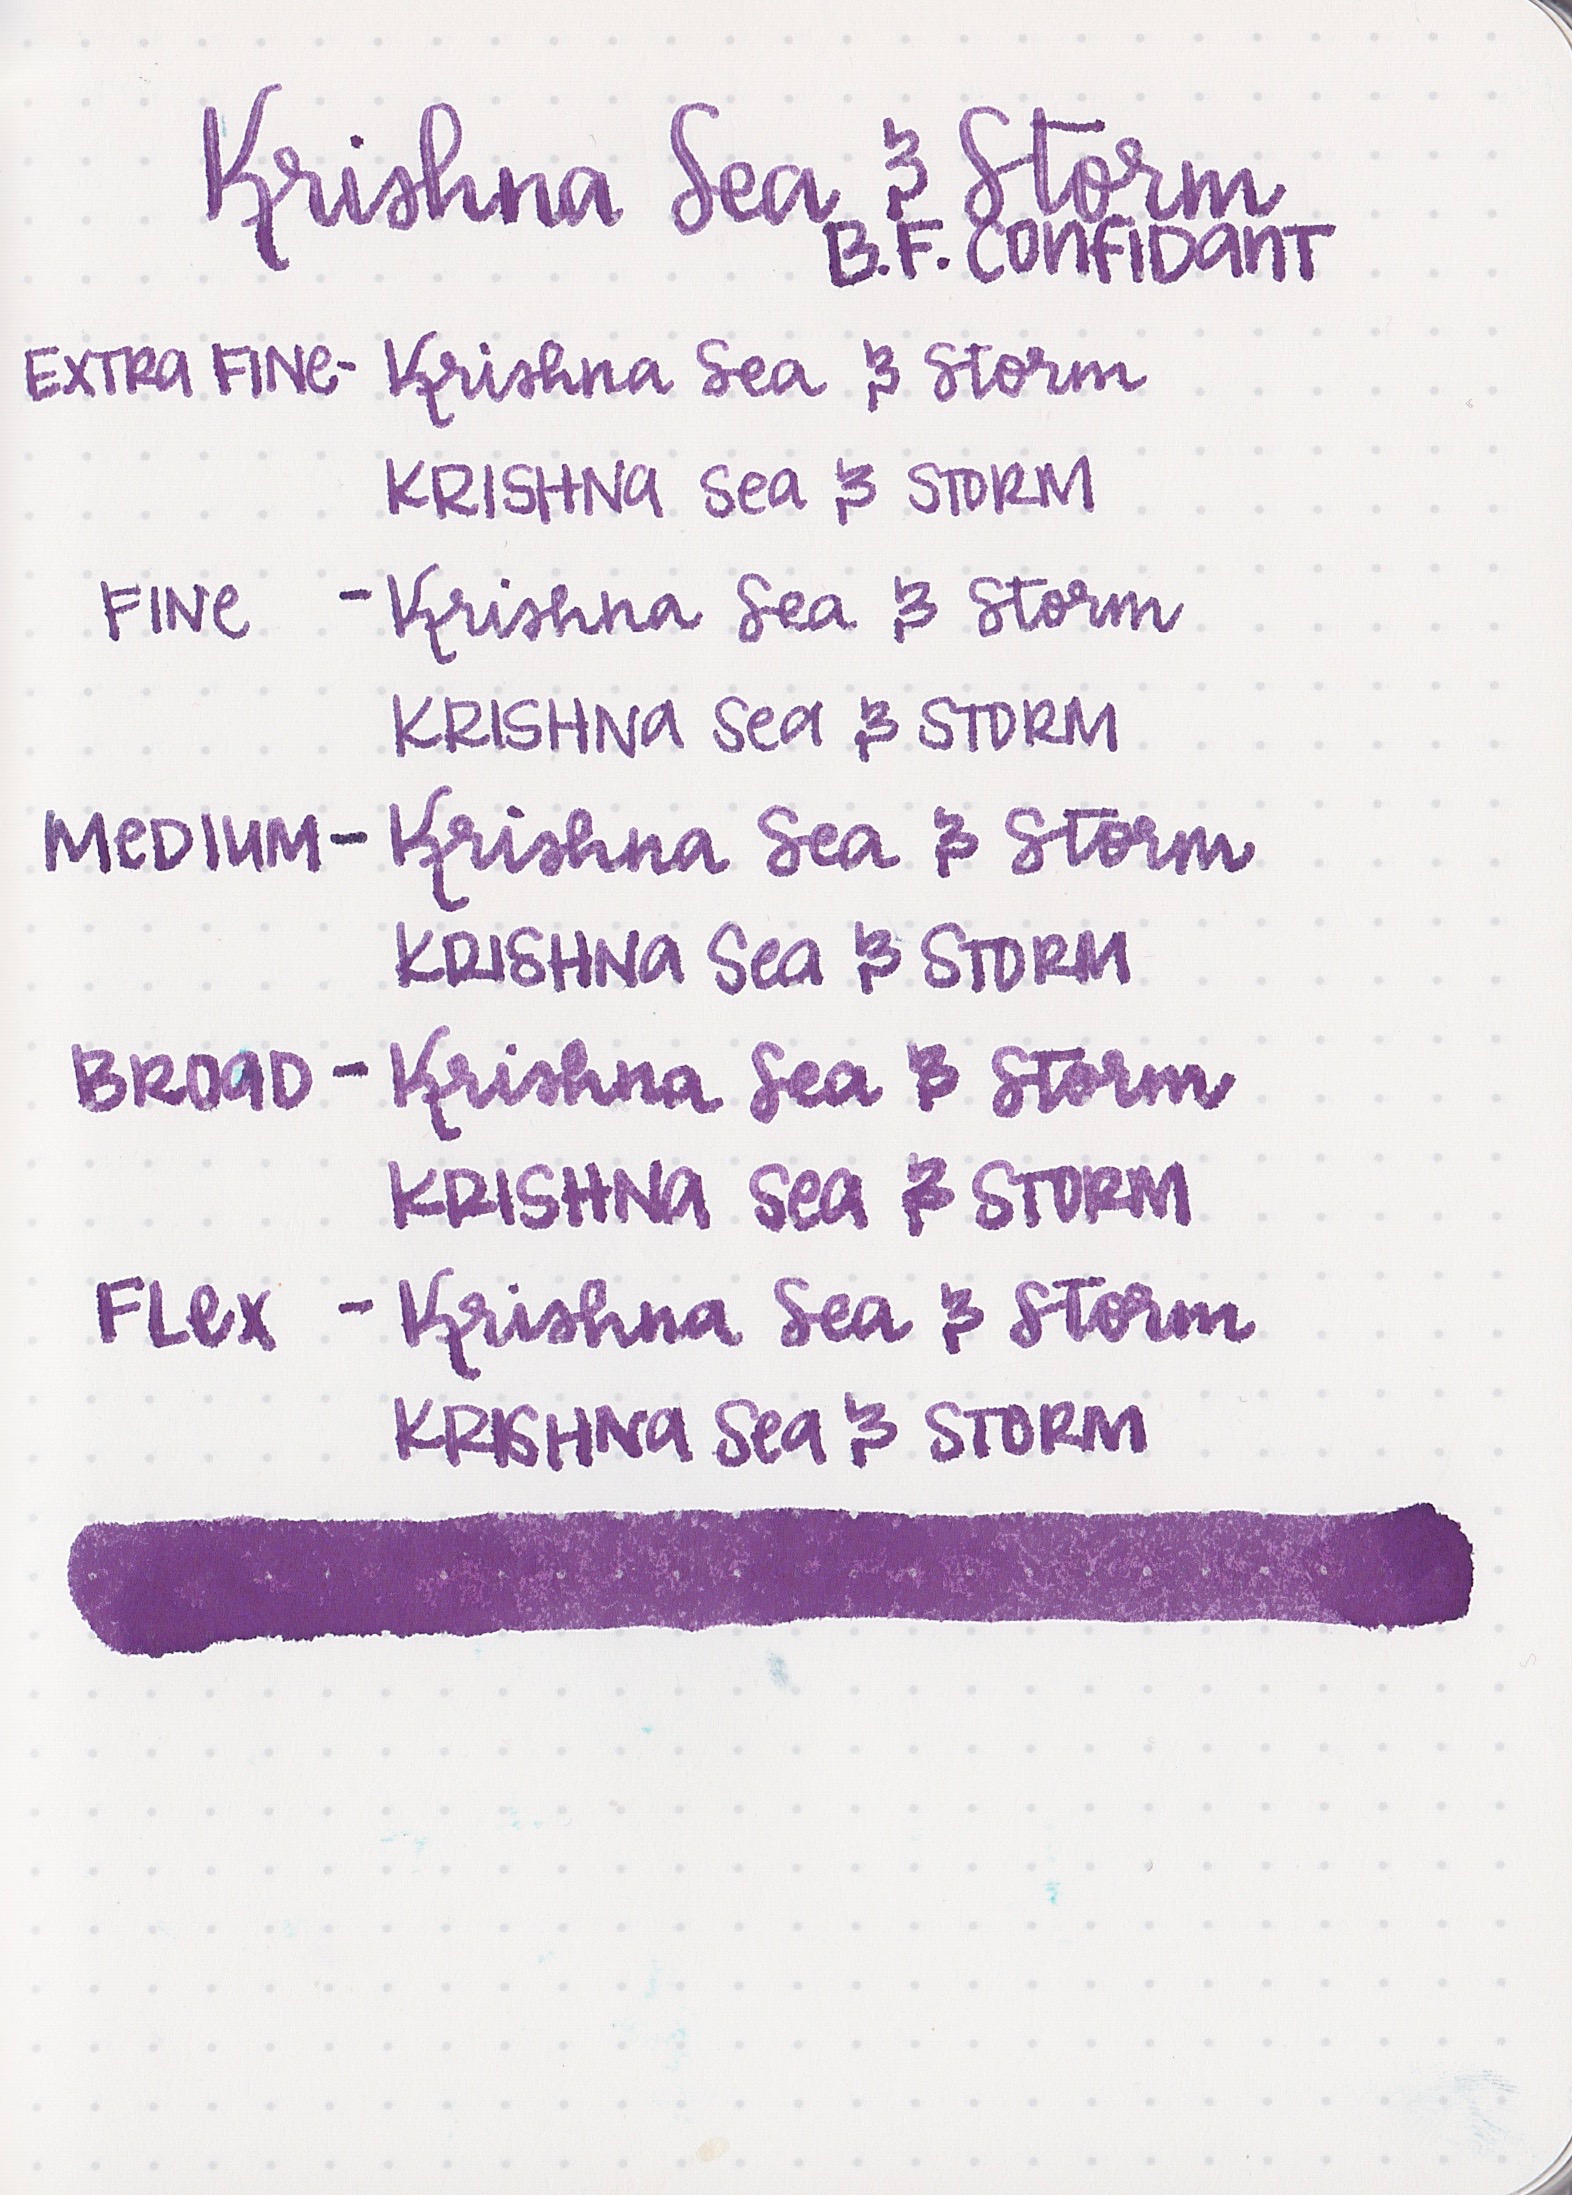 Krishna Sea & Storm
B.F. CONFIDANT
EXTRA FINE- Krishna Sea & Storm
KRISHNA Sea & STORM
FINE - Krishna Sea & Storm
KRISHNA Sea & STORM
MEDIUM - Krishna Sea & Storm
KRISHNA Sea & STORM
BROAD - Krishna Sea & Storm
KRISHNA Sea & STORM
FLex - Krishna Sea & Storm
KRISHNA Sea & STORM